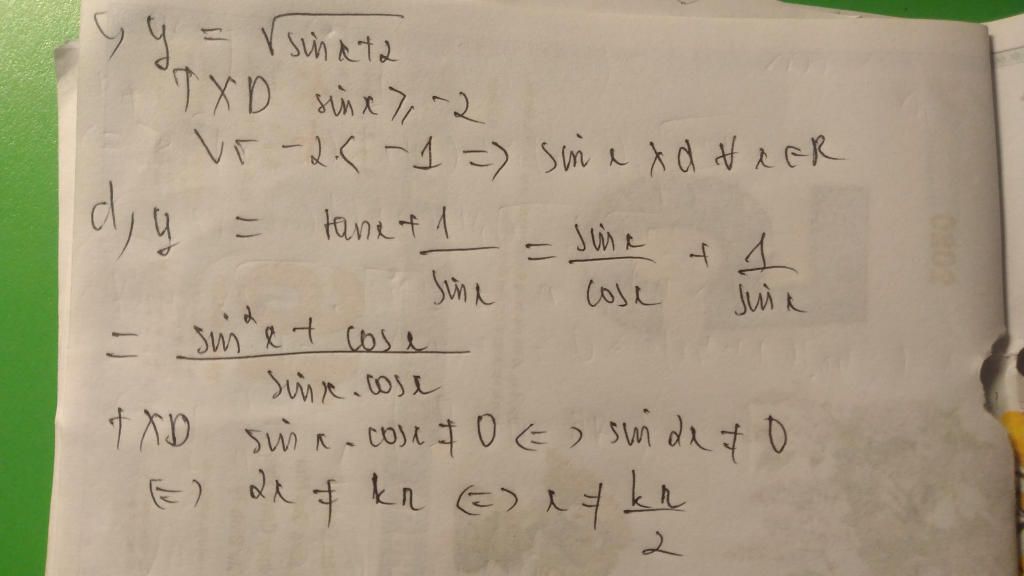 c, y = √(sinx+2)
TXD sinx ≥ -2
Vì -2 < -1 => sin x xd ∀ x ∈ R
d, y = tanx + 1/sinx = sinx/cosx + 1/sinx
= (sin²x + cosx)/(sinx.cosx)
TXD sin x . cosx ≠ 0 <=> sin 2x ≠ 0
<=> 2x ≠ kπ <=> x ≠ kπ/2